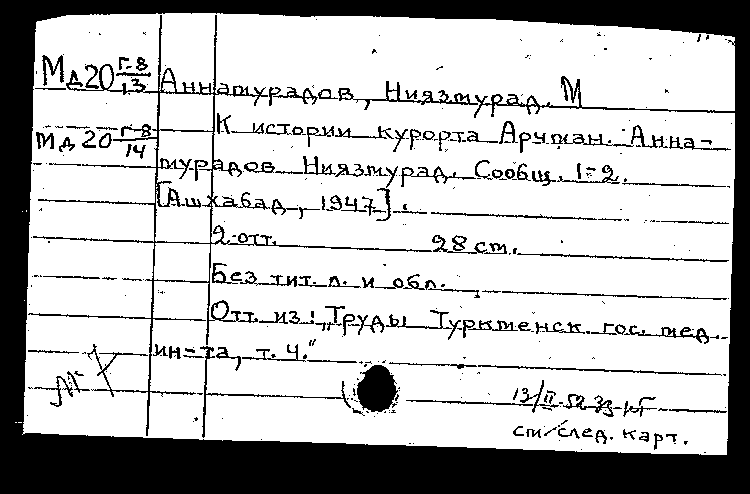 Мд20 Г-8/13 Аннамурадов, Ниязмурад. М
К истории курорта Арчман. Анна-
Мд 20 Г-8/14
мурадов Ниязмурад. Сообщ. 1-2.
[Ашхабад, 1947].
2 отт. 28 см.
Без тит. л. и обл.
Отт. из: "Труды Туркменск. гос. мед.
ин-та, т. 4."
13/II-52
см/след. карт.